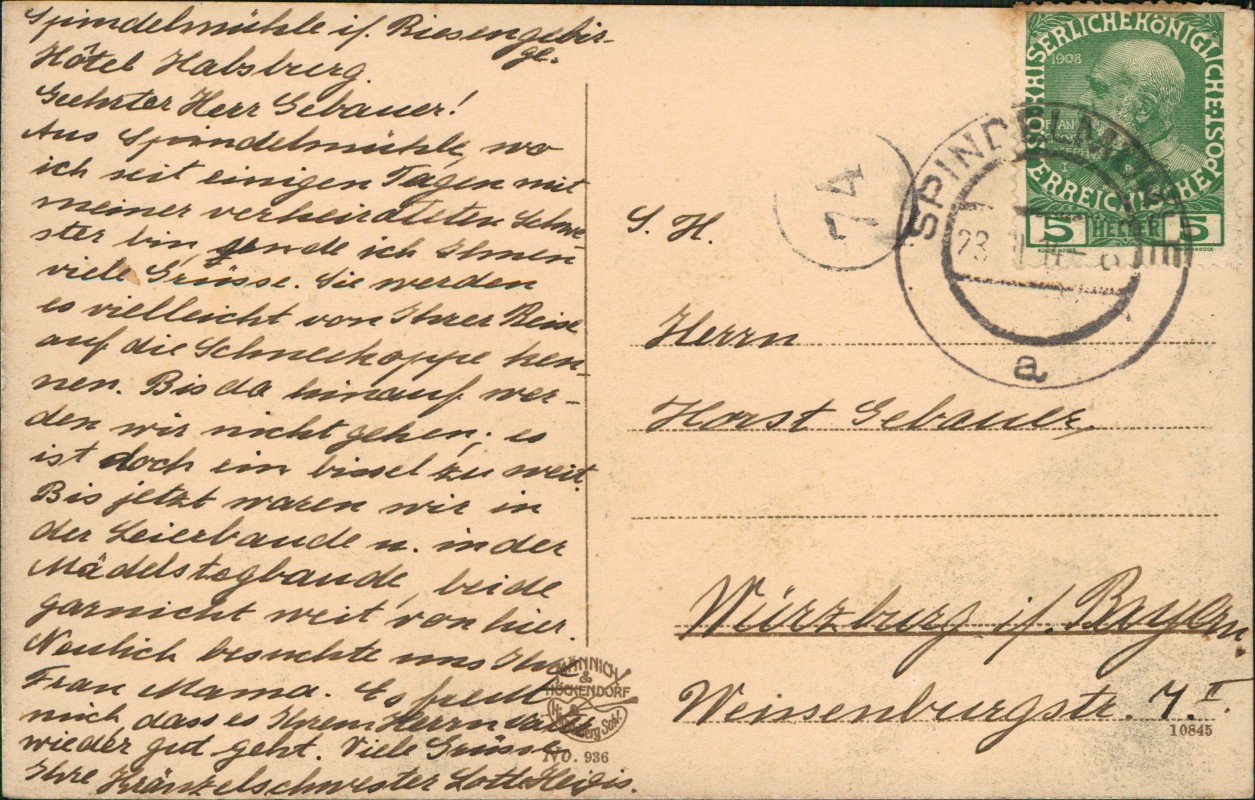 Spindelmühle i/. Riesengebir-
ge.
Hôtel Habsburg.
Geehrter Herr Gebauer!
Aus Spindelmühle, wo
ich seit einigen Tagen mit
meiner verheirateten Schwe-
ster bin, sende ich Ihnen
viele Grüsse. Sie werden
es vielleicht von Ihrer Reise
auf die Schneekoppe ken-
nen. Bis da hinauf wer-
den wir nicht gehen; es
ist doch ein bissel zu weit.
Bis jetzt waren wir in
der Leierbaude u. in der
Mädelstegbaude, beide
garnicht weit von hier.
Neulich besuchte uns Ihre
Frau Mama. Es freut
mich, dass es Ihrem Herrn Vater
wieder gut geht. Viele Grüsse
Ihre Kränzelschwester Lotte
KAISERLICHE KÖNIGLICHE ÖSTERREICHISCHE POST
1908
5 HELLER 5
SPINDELMÜHLE
23
a
74
S. H.
Herrn
Horst Gebauer,
Würzburg i/. Bayern.
Weissenburgstr. 7. II.
10845
MÄNNICH
&
HÖCKENDORF
No. 936